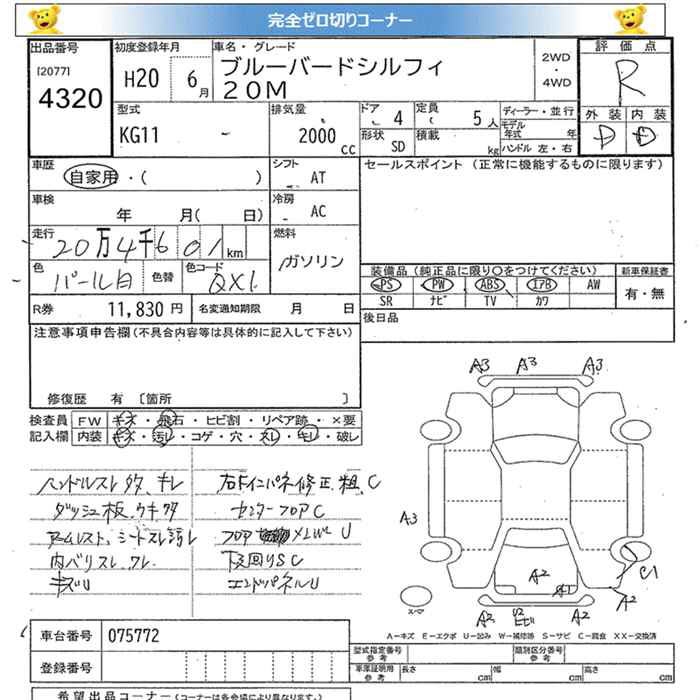 完全ゼロ切りコーナー
出品番号 初度登録年月 車名・グレード 2WD ・ 4WD 評価点
[2077] 4320 H20 6月 ブルーバードシルフィ 20M R
型式 排気量 ドア 4 定員 5人 ディーラー・並行 外装 内装
KG11 - 2000cc 形状 SD 積載 kg モデル年式 年 D D
ハンドル 左・右
車歴 自家用・( ) シフト AT セールスポイント (正常に機能するものに限ります)
車検 年 月( 日) 冷房 AC
走行 20万4千601km 燃料 ガソリン
色 パール白 色替 色コード QX1 装備品 (純正品に限り○をつけてください) 新車保証書
PS PW ABS エアB AW 有・無
SR ナビ TV カワ
R券 11,830円 名変通知期限 月 日 後日品
注意事項申告欄(不具合内容等は具体的に記入して下さい)
修復歴 有 〔箇所 〕
検査員 FW キズ・飛石・ヒビ割・リペア跡・×要
記入欄 内装 キズ・汚レ・コゲ・穴・スレ・キレ・破レ
ハンドルスレ キレ 右 インパネ修正 粗、C
ダッシュ板、ウキ センターフロアC
アームレスト、シートスレ汚レ フロア U
内バリスレ 下回りSC
キズU エンドパネルU
A3 A3 A3
A3
A2 A1 C1
スペア A2 A2 A2
A－キズ E－エクボ U－凹み W－補修跡 S－サビ C－腐食 XX－交換済
車台番号 075772 型式指定番号 参考 類別区分番号 参考
登録番号 車体証明用 参考 長さ cm 幅 cm 高さ cm
希望出品コーナー (コーナーは各会場により異なります。)